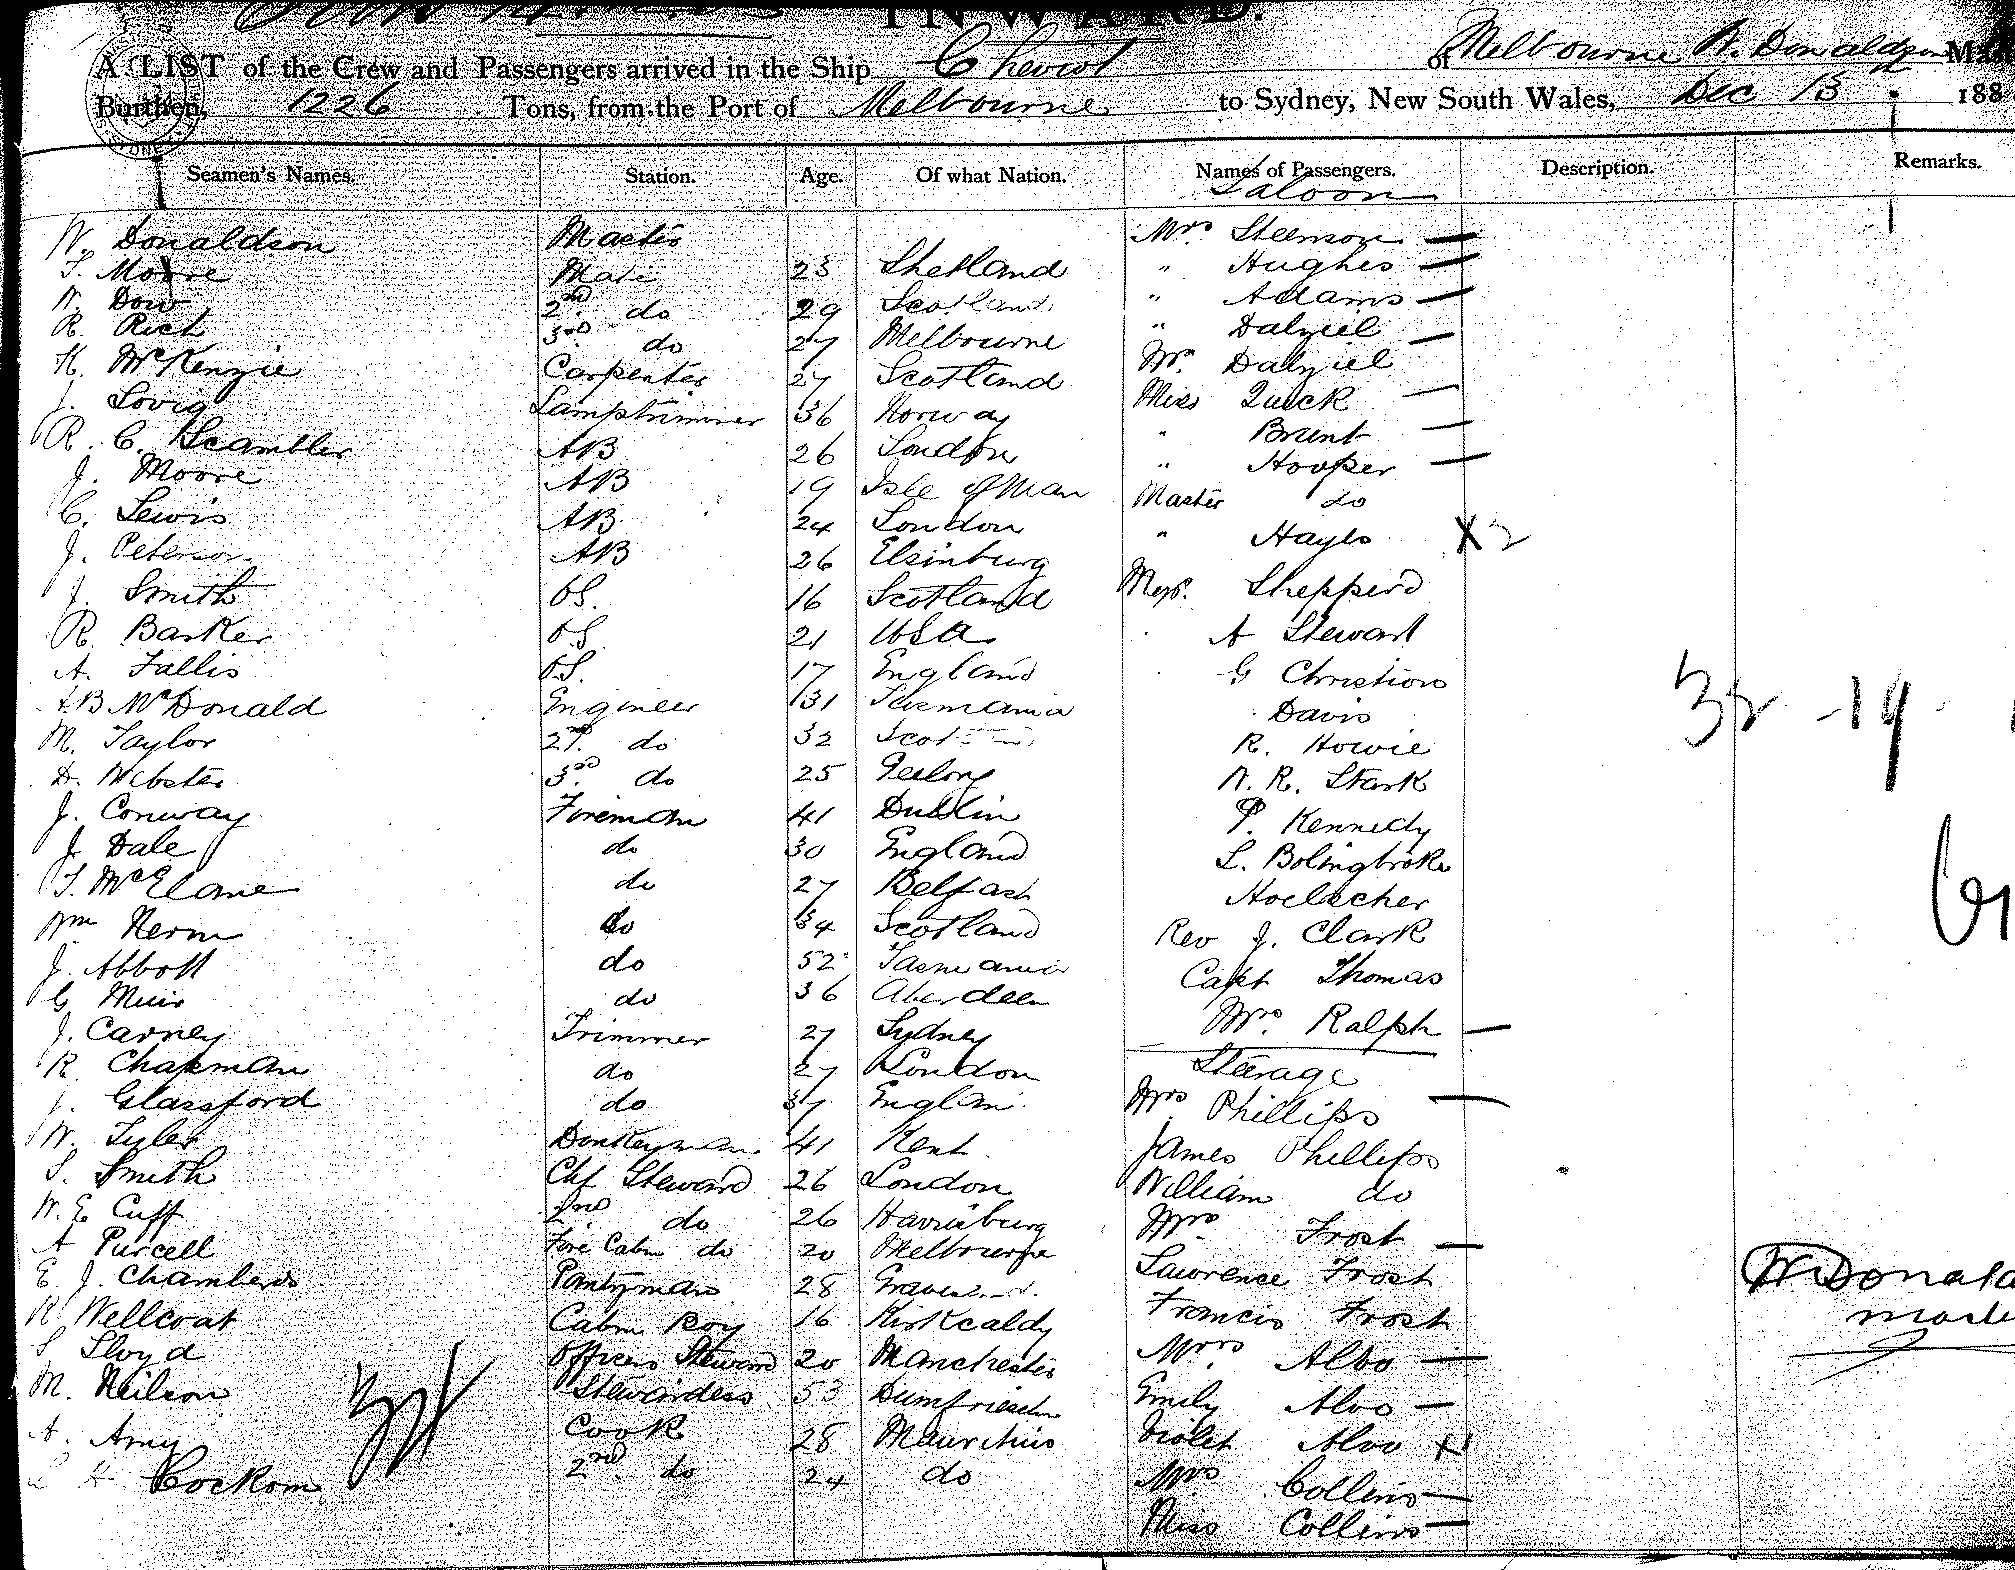 INWARD.
A LIST of the Crew and Passengers arrived in the Ship Cheviot of Melbourne W. Donaldson
Burthen, 1226 Tons, from the Port of Melbourne to Sydney, New South Wales, Dec 13 188
Seamen's Names. Station. Age. Of what Nation. Names of Passengers. Description. Remarks.
Saloon
W. Donaldson Master Mrs. Steenson
T. Moore Mate 23 Shetland " Hughes
W. Dow 2nd do 29 Scotland " Adams
R. Rich 3rd do 27 Melbourne " Dalziel
K. McKenzie Carpenter 27 Scotland Mr. Dalziel
J. Lovig Lamptrimmer 36 Norway Miss Quick
R. C. Scambler AB 26 London " Brunt
J. Moore AB 19 Isle of Man " Hooper
C. Lewis AB 24 London Master do
J. Peterson AB 26 Elsinburg " Hayes X 2
J. Smith OS. 16 Scotland Shepperd
R. Barker OS. 21 USA A Stewart
A. Fallis OS. 17 England G Christian
McDonald Engineer 31 Davis
M. Taylor 2nd do 32 R. Howie
D. Webster 3rd do 25 Geelong W. R. Stark
J. Conway Fireman 41 Dublin P. Kennedy
J. Dale do 30 England L. Bolingbroke
T. McElane do 27 Belfast Hoelscher
Wm Herm do 34 Scotland Rev J. Clark
J. Abbott do 52 Tasmania Capt Thomas
G Muir do 36 Aberdeen Mrs. Ralph
J. Carney Trimmer 27 Sydney
Steerage
R Chapman do 27 London Mrs Phillips
J. Glassford do 37 England James Phillips
W. Tyler Donkeyman 41 Kent William do
S. Smith Chf Steward 26 London Mrs Frost
W. E Cuff 2nd do 26 Lawrence Frost
A Purcell Fore Cabin do 20 Melbourne Francis Frost
E. J. Chambers Pantryman 28 Mrs. Alvo
R Wellcoat Cabin Boy 16 Kirkcaldy Emily Alvo
S Lloyd Officers Steward 20 Manchester Violet Alvo X
M. Neilson Stewardess 53 Mrs Collins
A. Amy Cook 28 Mauritius Miss Collins
Cockom 2nd do 24 do
W Donald
maste